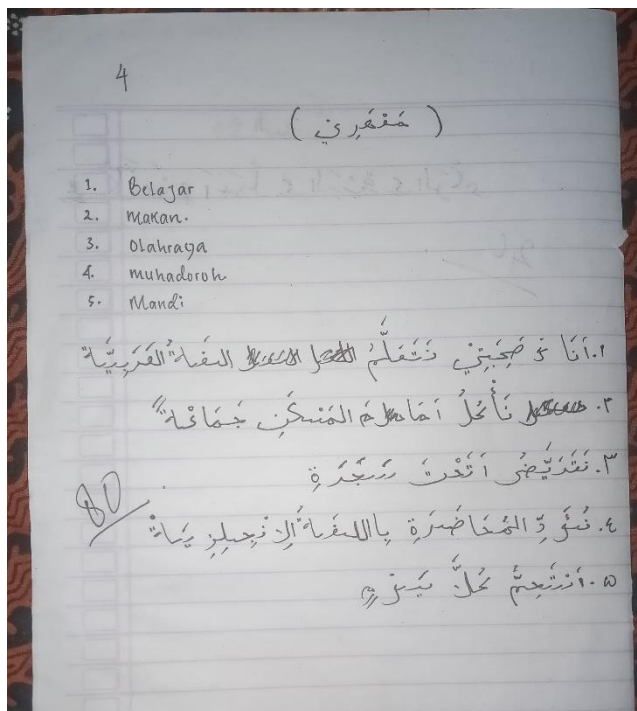 4
( مَهْرِي )
1. Belajar
2. Makan.
3. Olahraga
4. muhadoroh
5. Mandi
١. أَنَا وَ صَحِبَتِيْ نَتَعَلَّمُ اللغَةُ العَرَبِيَّة
٢. نَأْكُلُ أمَامَ المَسْكَنِ جَمَاعَةً
٣. نَتَرَيَّضُ اتَحْتَ سَجَرَةِ
٤. نُؤَدِّ المُحَاضَرَةِ بِاللغَةُ الِانْجِلِزِيَةْ
٥. أسْتَحِمُّ كُلَّ يَوْمٍ
80